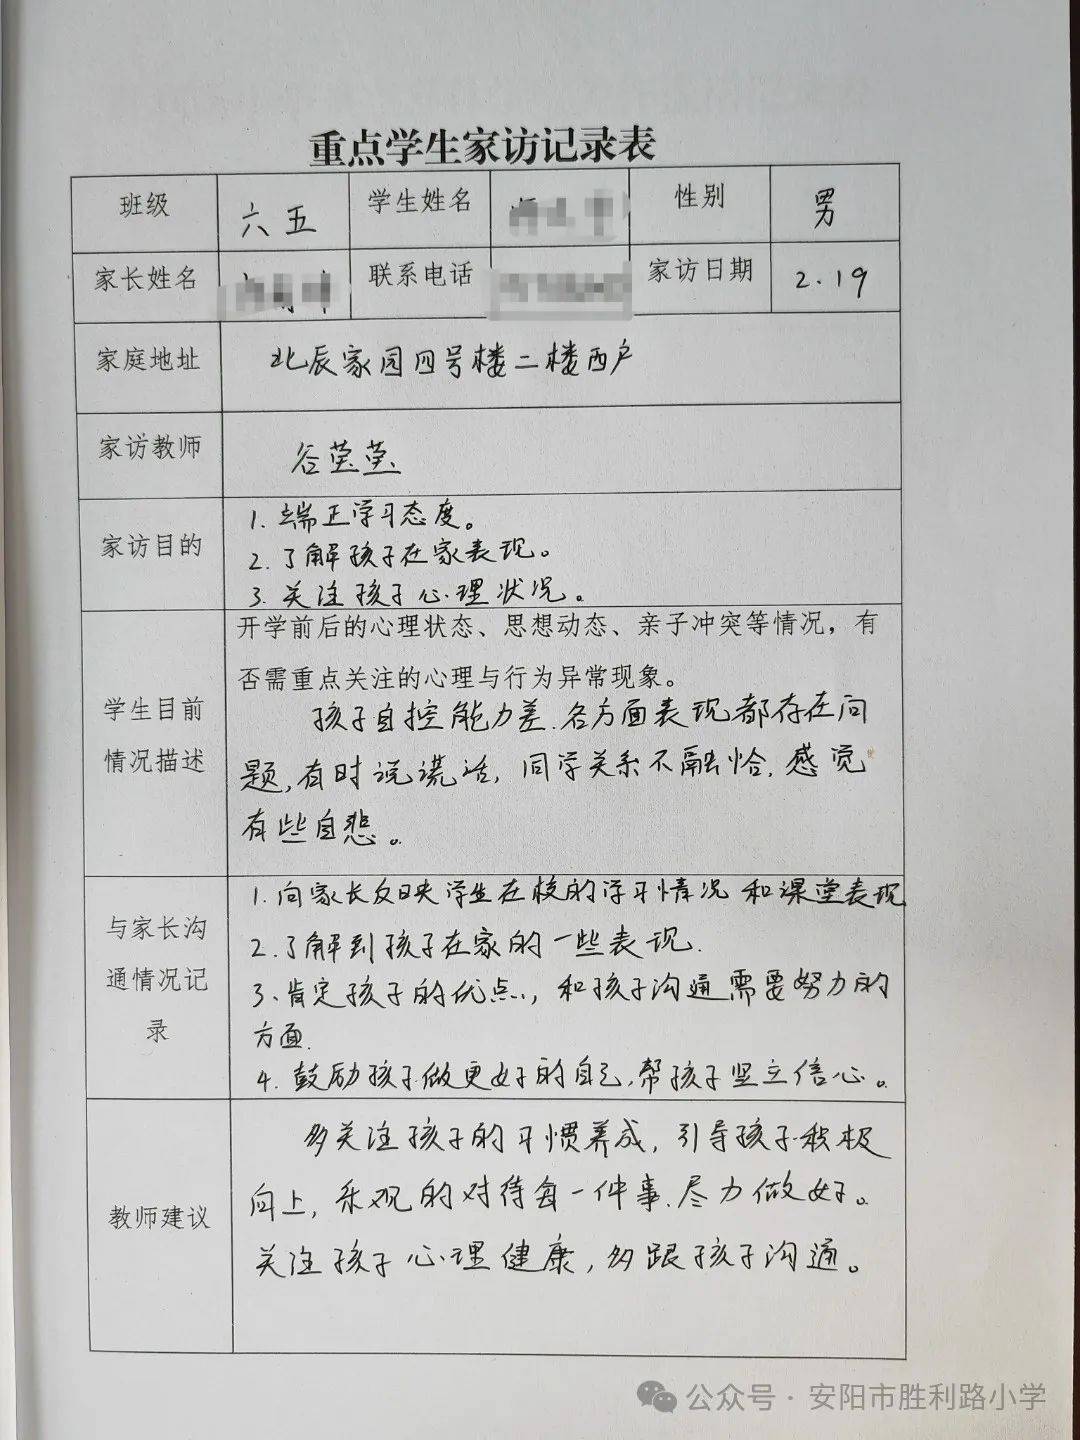 重点学生家访记录表
班级 六五 学生姓名 性别 男
家长姓名 联系电话 家访日期 2.19
家庭地址 北辰家园四号楼二楼西户
家访教师 谷莹莹
家访目的
1. 端正学习态度。
2. 了解孩子在家表现。
3. 关注孩子心理状况。
学生目前
情况描述
开学前后的心理状态、思想动态、亲子冲突等情况，有
否需重点关注的心理与行为异常现象。
孩子自控能力差.各方面表现都存在问
题,有时说谎话，同学关系不融恰.感觉
有些自悲。
与家长沟
通情况记
录
1. 向家长反映学生在校的学习情况和课堂表现
2. 了解到孩子在家的一些表现.
3、肯定孩子的优点，和孩子沟通需要努力的
方面.
4. 鼓励孩子做更好的自己,帮孩子坚立信心。
教师建议
多关注孩子的习惯养成，引导孩子积极
向上，乐观的对待每一件事.尽力做好。
关注孩子心理健康，多跟孩子沟通。
公众号·安阳市胜利路小学